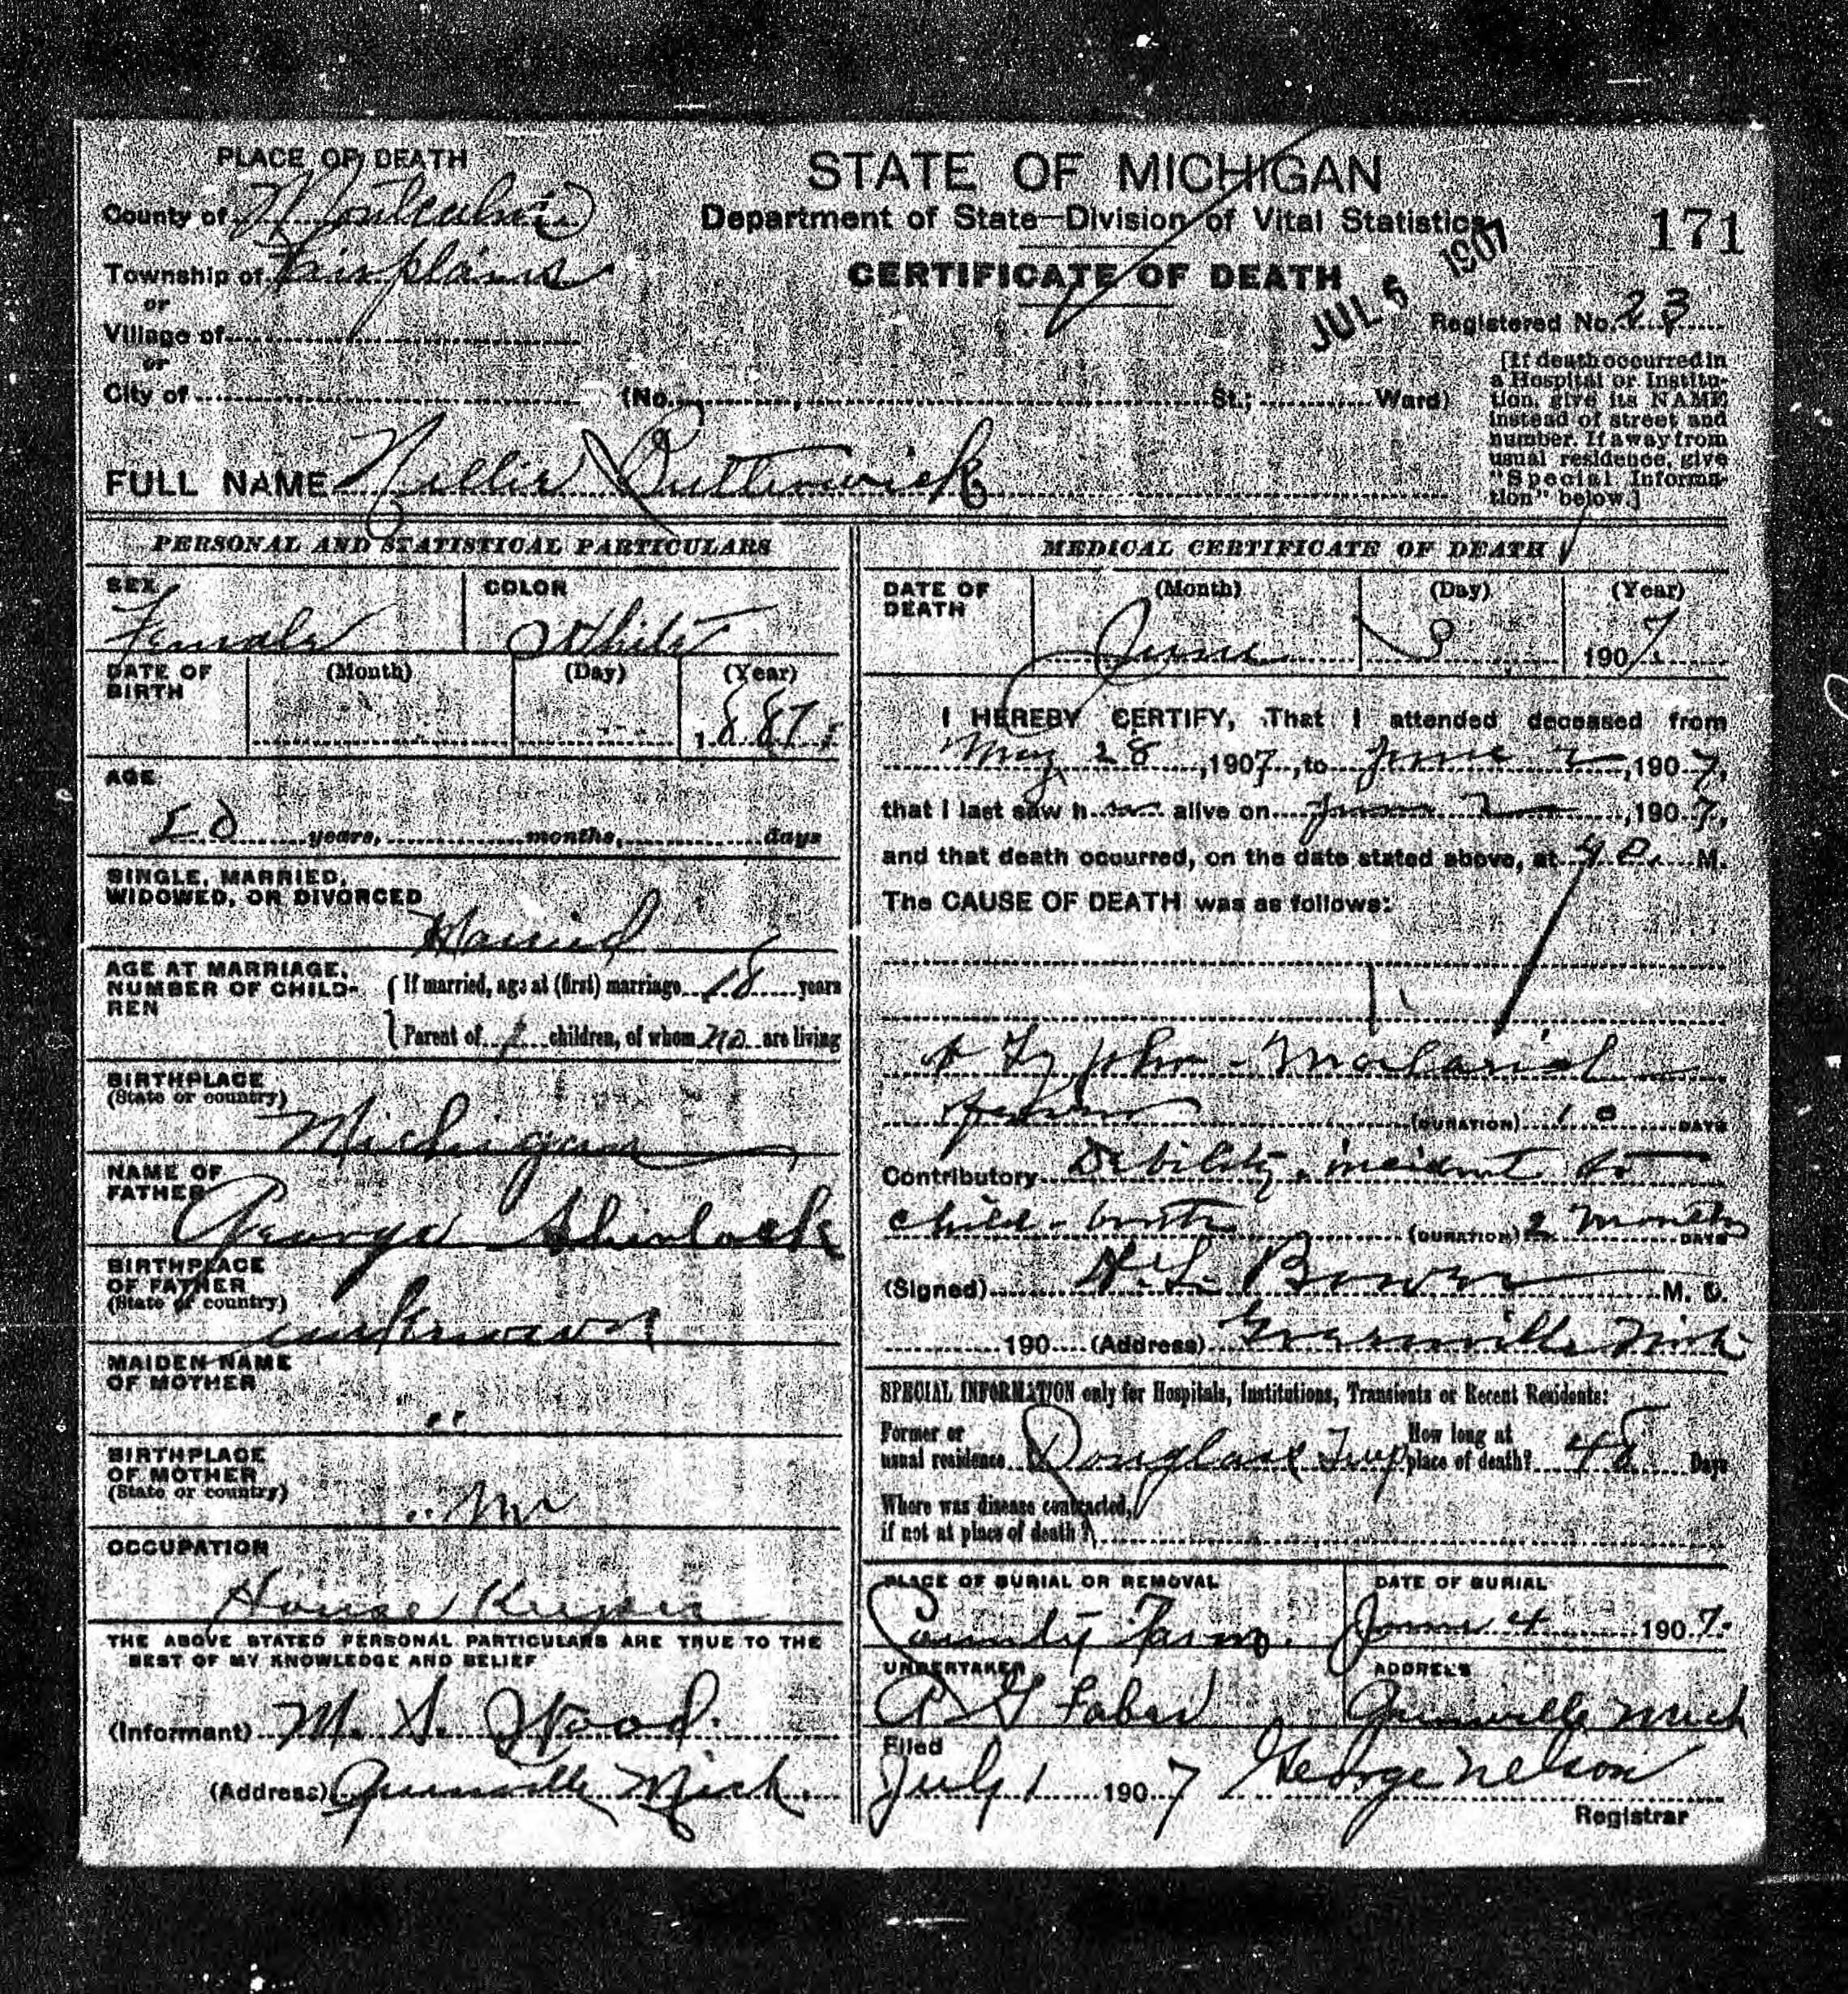 PLACE OF DEATH
County of Montcalm
Township of Fairplains
or
Village of
or
City of (No. , St.; Ward)
STATE OF MICHIGAN
Department of State—Division of Vital Statistics
CERTIFICATE OF DEATH
JUL 5 1907
171
Registered No. 23
[If death occurred in
a Hospital or Institu-
tion, give its NAME
instead of street and
number. If away from
usual residence, give
"Special Informa-
tion" below.]
FULL NAME Nellie Butterwick
PERSONAL AND STATISTICAL PARTICULARS
SEX COLOR
Female White
DATE OF BIRTH (Month) (Day) (Year)
1887
AGE
20 years, months, days
SINGLE, MARRIED,
WIDOWED, OR DIVORCED
Married
AGE AT MARRIAGE,
NUMBER OF CHILD-
REN
If married, age at (first) marriage 18 years
Parent of 1 children, of whom no are living
BIRTHPLACE
(State or country)
Michigan
NAME OF
FATHER
George Shirlock
BIRTHPLACE
OF FATHER
(State or country)
unknown
MAIDEN NAME
OF MOTHER
" "
BIRTHPLACE
OF MOTHER
(State or country)
OCCUPATION
House Keeper
THE ABOVE STATED PERSONAL PARTICULARS ARE TRUE TO THE
BEST OF MY KNOWLEDGE AND BELIEF
(Informant) M. S. Wood
(Address) Greenville Mich.
MEDICAL CERTIFICATE OF DEATH
DATE OF
DEATH
(Month) (Day) (Year)
June 1907
I HEREBY CERTIFY, That I attended deceased from
May 28, 1907, to June 2, 1907,
that I last saw h alive on June 2, 1907,
and that death occurred, on the date stated above, at M.
The CAUSE OF DEATH was as follows:
Typho-Malarial
fever (DURATION) 10 DAYS
Contributory Debility incident to
child-birth (DURATION) 2 months DAYS
(Signed) H. L. Bower M. D.
190 (Address) Greenville Mich
SPECIAL INFORMATION only for Hospitals, Institutions, Transients or Recent Residents:
Former or
usual residence Douglass Twp
How long at
place of death? 48 Days
Where was disease contracted,
if not at place of death?
PLACE OF BURIAL OR REMOVAL DATE OF BURIAL
County Farm. June 4 1907.
UNDERTAKER ADDRESS
Faber Greenville Mich
Filed
July 1 1907 George Nelson
Registrar